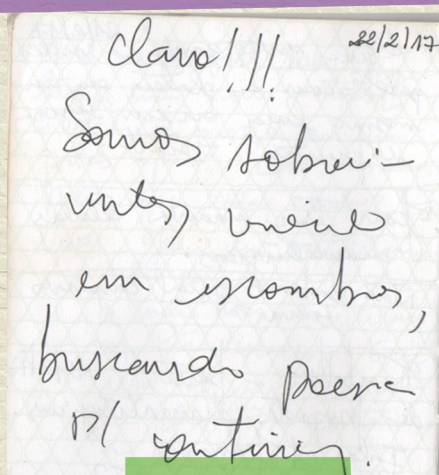 22/2/17
Claro!!!
Somos sobrevi-
ventes vivendo
em escombros,
buscando poesia
p/ continuar.